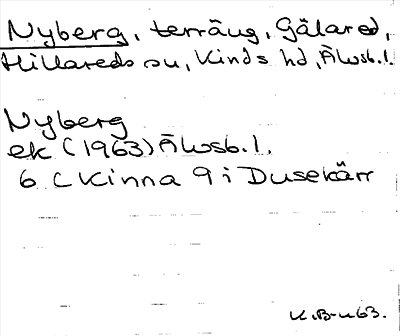 Nyberg, terräng, Gälared,
Hillareds sn, Kinds hd, Älvsb.l.
Nyberg
ek (1963) Älvsb.l.
6 C Kinna 9 i Dusekärr
K.B-n 63.